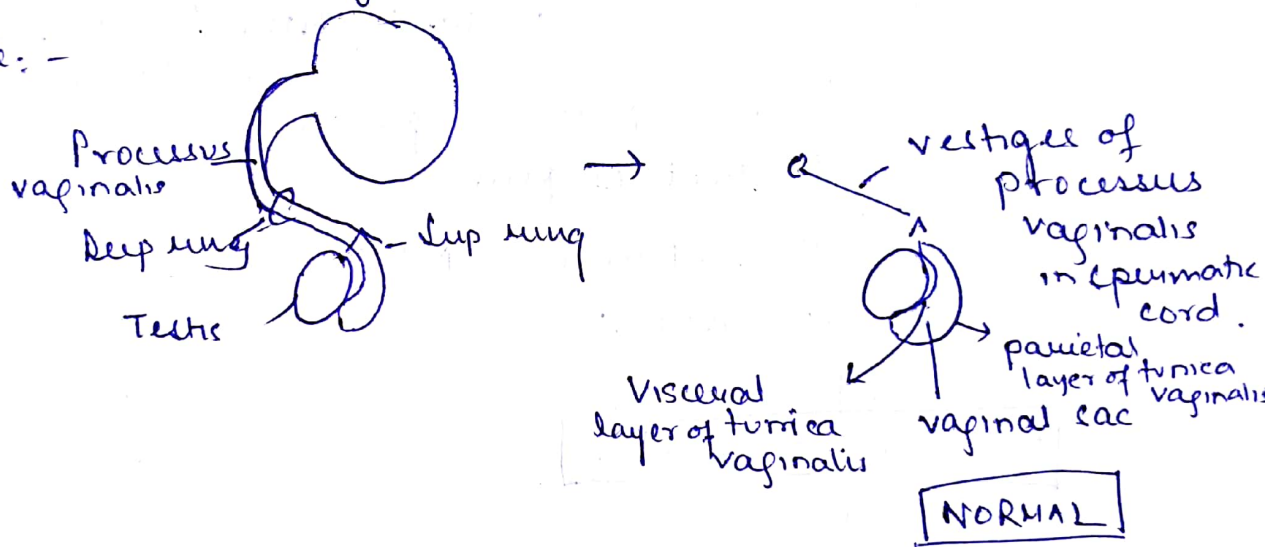 Processus
vaginalis
Deep ring
Sup ring
Testis
→
vestiges of
processus
vaginalis
in spermatic
cord.
parietal
layer of tunica
vaginalis
Visceral
layer of tunica
vaginalis
vaginal sac
NORMAL